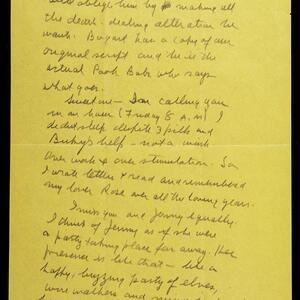 oblige him by making all
the death-dealing alteration he
wants. Bogard has a copy of our
original script and he is the
actual Pooh Bah who says
what goes.
Sweet one - I am calling you
in an hour (Friday 8 A.M.) I
didn't sleep despite 3 pills and
help - not a wink
Over work & over stimulation. So
I wrote letters & read and remembered
my lover Rose over all the loving years.
I miss you and Jenny equally.
I think of Jenny as if she were
a party taking place far away. Her
presence is like that - like a
happy, buzzing party of elves,